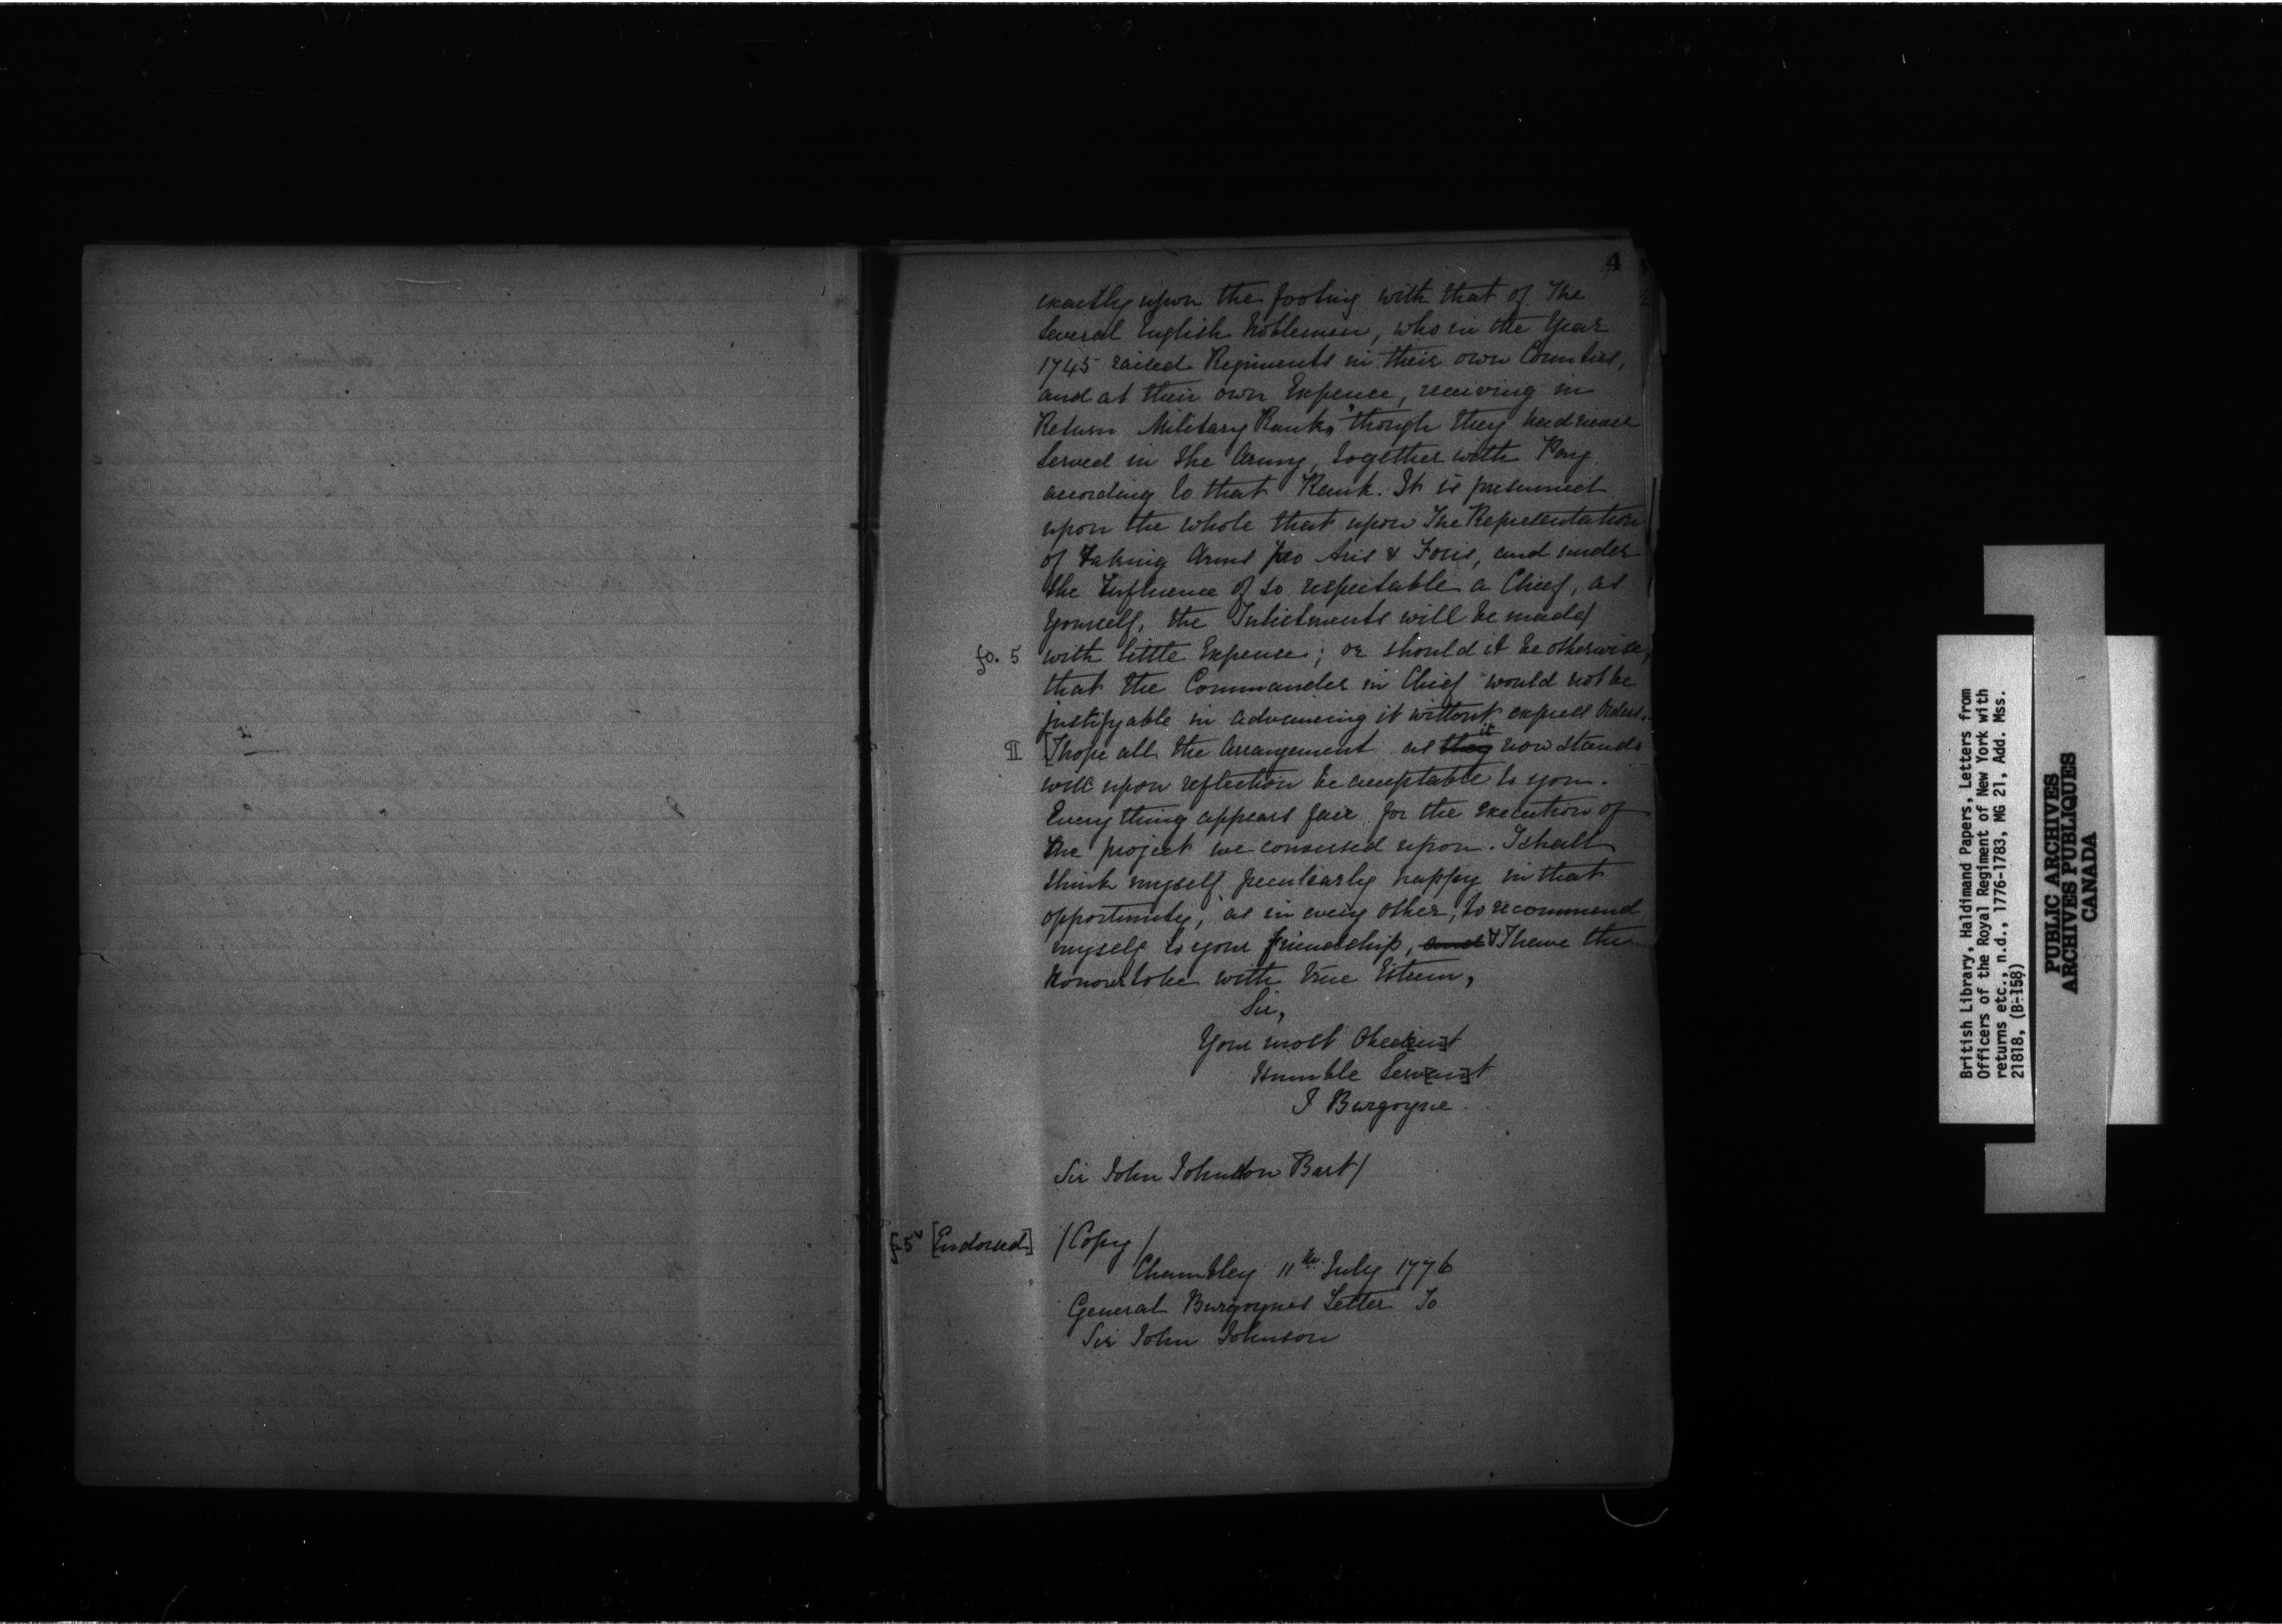 4
exactly upon the footing with that of The
Several English Noblemen, who in the Year
1745 raised Regiments in their own Counties,
and at their own Expence, receiving in
Return Military Rank, though they had never
Served in the Army, together with Pay
according to that Rank. It is presumed
upon the whole that upon The Representation
of Taking Arms pro Aris & Focis, and under
the Influence of so respectable a Chief, as
Yourself, the Inlistments will be made
fo. 5 with little Expense; or should it be otherwise,
that the Commander in Chief would not be
justifyable in advancing it without express Orders.
¶ [I hope all the Arrangement as they it now stands
will upon reflection be acceptable to you.
Every thing appears fair for the Execution of
the project we conversed upon. I shall
think myself peculiarly happy in that
opportunity, as in every other, to recommend
myself to your friendship, and & I have the
Honour to be with true Esteem,
Sir,
Your most Obed[ien]t
Humble Serv[an]t
J Burgoyne
Sir John Johnson Bart/
f. 5v [Endorsed] /Copy/
Chambley 11th July 1776
General Burgoynes Letter To
Sir John Johnson
British Library, Haldimand Papers, Letters from
Officers of the Royal Regiment of New York with
returns etc., n.d., 1776-1783, MG 21, Add. Mss.
21818, (B-158)
PUBLIC ARCHIVES
ARCHIVES PUBLIQUES
CANADA